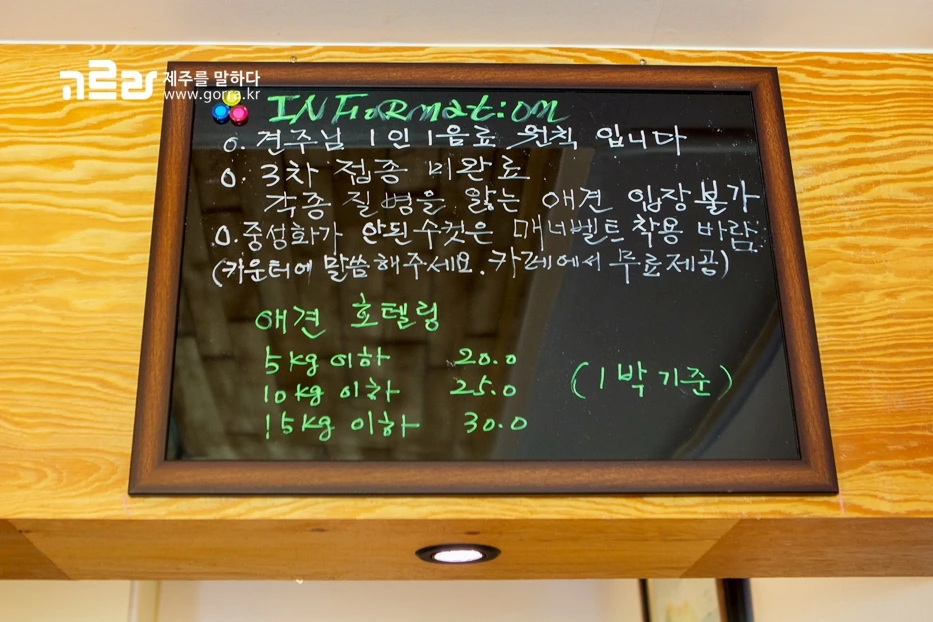 고르라 제주를 말하다
www.gorra.kr
INFORmation
o. 견주님 1인 1음료 원칙 입니다
o. 3차 접종 미완료
각종 질병을 앓는 애견 입장불가
o. 중성화가 안된 수컷은 매너벨트 착용 바람.
(카운터에 말씀해주세요. 카페에서 무료제공)
애견 호텔링
5kg 이하 20.0
10kg 이하 25.0 (1박 기준)
15kg 이하 30.0